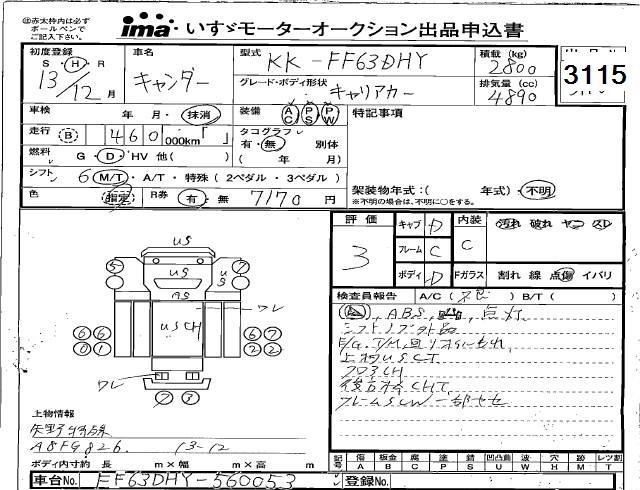 ㊟赤太枠内は必ず
ボールペンで
ご記入下さい。
ima いすゞモーターオークション出品申込書
初度登録 車名 型式 KK-FF63DHY 積載 (kg) 2800
S・H・R 13/12月 グレード・ボディ形状 キャリアカー 排気量 (cc) 4890
3115
車検 年 月・抹消 装備 AC PS PW 特記事項
走行 B 460 000km「 」 タコグラフ 有・無 別体
燃料 G・D・HV 他( ) ( 年 月)
シフト 6 M/T・A/T・特殊(2ペダル・3ペダル)
架装物年式:( 年式)・不明
色 指定 R券 有・無 7170円 ※不明の場合は、不明に○をする。
評価 3 キャブ D 内装 C 汚れ 破れ ヤニ スレ
フレーム C
ボディ D Fガラス 割れ 線 点傷 イバリ
検査員報告 A/C( ) B/T( )
ABS, 点灯
シフトノブ外品
上物USCT
フロアCH
フレームSCW一部セセ
US
5 7
US US
AS
ワレ
USCH
6 6 6 7
0 1 2 2
ワレ
7 3
上物情報
A8FG826. 13-12
ボディ内寸約 長 m×幅 m×高 m
記号 傷A 板金B 腐C 塗P 錆S 凹凸曲U 波W 穴H 跡M レツ割T
車台No. FF63DHY-560053 登録No.